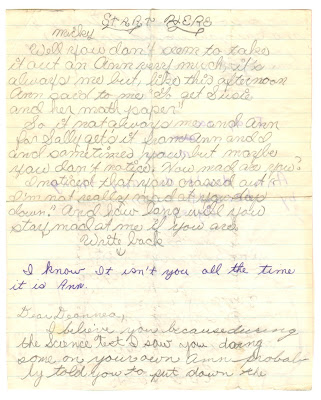 START HERE
micky
Well you don't seem to take
it out on Ann very much, it's
always me but, like this afternoon
Ann said to me "I'll get Susie
and her math paper"
So it not always me and Ann
for Sally gets it from Ann and I
and sometimes you, but maybe
you don't notice. How mad are you?
I noticed that you crossed out I
am not really mad at you
down? And how long will you
stay mad at me if you are.
Write back
I know It isn't you all the time
it is Ann.
Dear Deannea,
I believe you because during
the Science Test I saw you doing
some on your own Ann probab-
ly told you to put down the